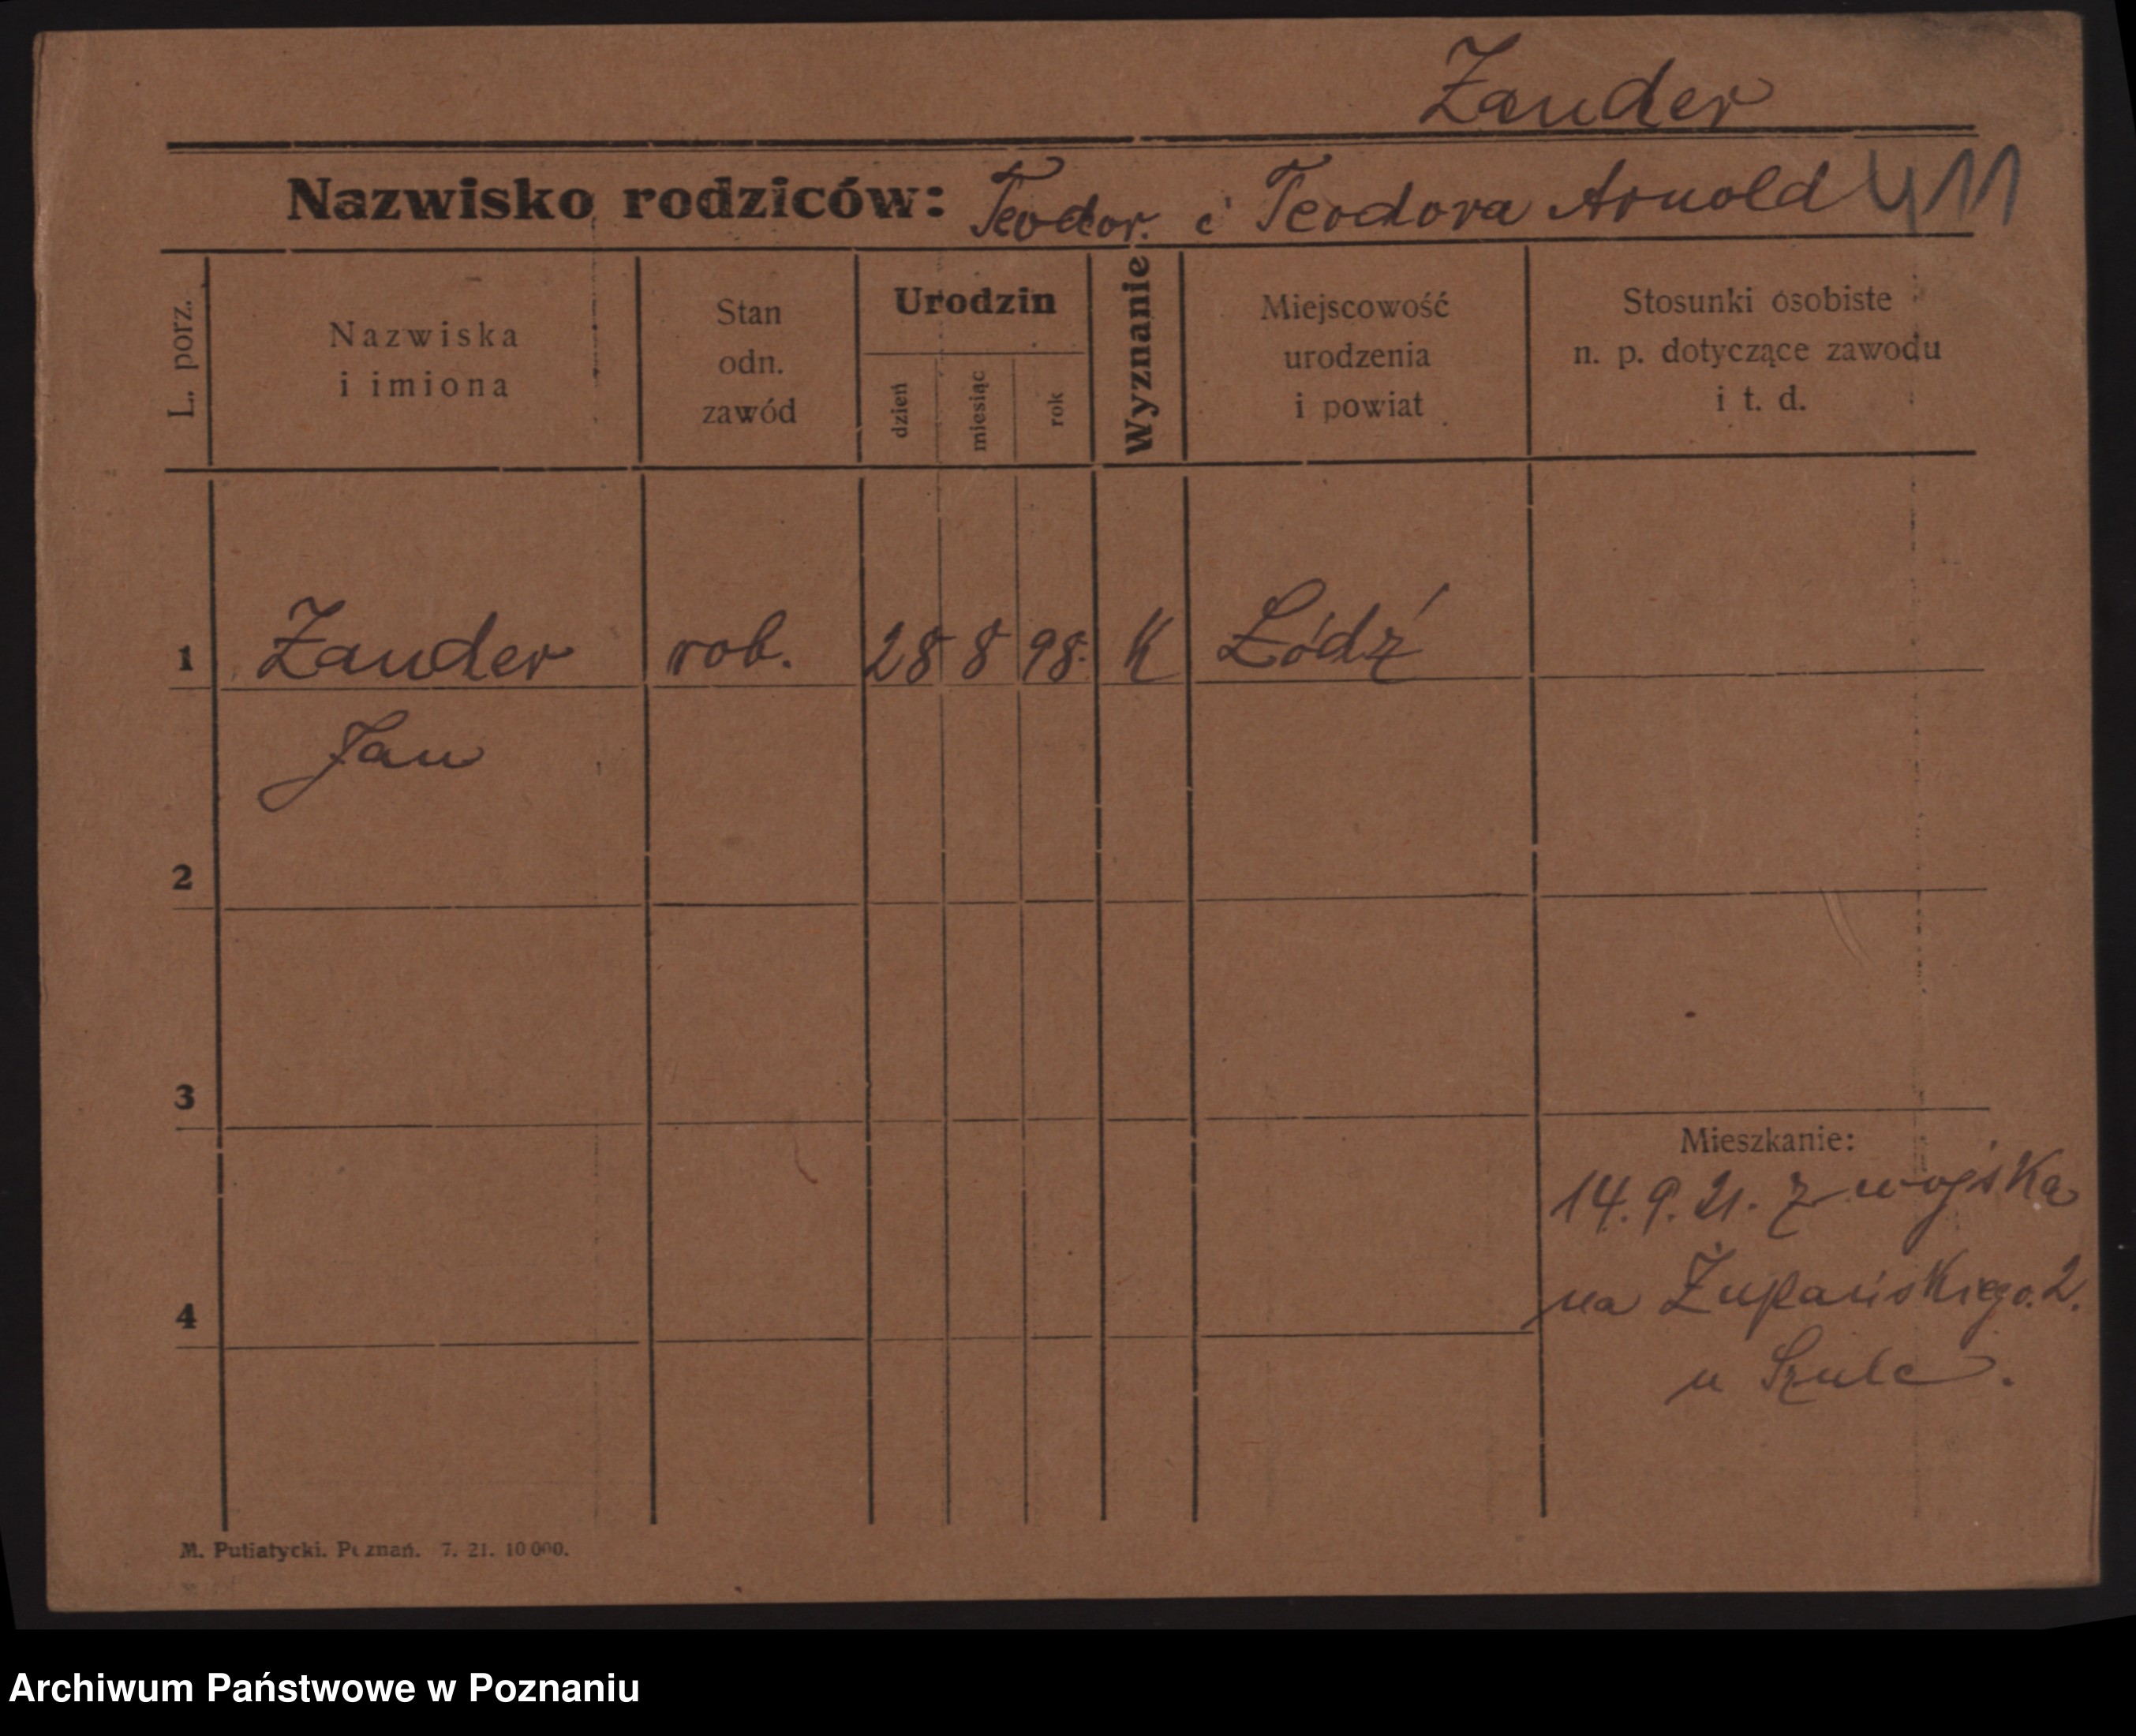 Zander
Nazwisko rodziców: Teodor. i Teodora Arnold 411
L. porz.
Nazwiska
i imiona
Stan
odn.
zawód
Urodzin
dzień
miesiąc
rok
Wyznanie
Miejscowość
urodzenia
i powiat
Stosunki osobiste
n. p. dotyczące zawodu
i t. d.
1 Zander rob. 28 8 98. K Łódź
Jan
2
3
Mieszkanie:
14. 9. 21. z wojska
na Żupańskiego. 2.
4
u Szulc.
M. Putiatycki. Poznań. 7. 21. 10 000.
Archiwum Państwowe w Poznaniu